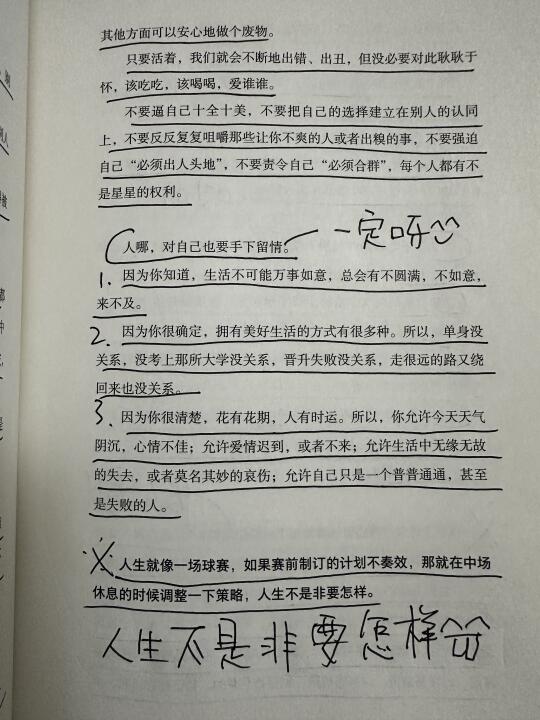 其他方面可以安心地做个废物。
只要活着，我们就会不断地出错、出丑，但没必要对此耿耿于
怀，该吃吃，该喝喝，爱谁谁。
不要逼自己十全十美，不要把自己的选择建立在别人的认同
上，不要反反复复咀嚼那些让你不爽的人或者出糗的事，不要强迫
自己“必须出人头地”，不要责令自己“必须合群”，每个人都有不
是星星的权利。
人哪，对自己也要手下留情。 一定呀
1. 因为你知道，生活不可能万事如意，总会有不圆满，不如意，
来不及。
2. 因为你很确定，拥有美好生活的方式有很多种。所以，单身没
关系，没考上那所大学没关系，晋升失败没关系，走很远的路又绕
回来也没关系。
3. 因为你很清楚，花有花期，人有时运。所以，你允许今天天气
阴沉，心情不佳；允许爱情迟到，或者不来；允许生活中无缘无故
的失去，或者莫名其妙的哀伤；允许自己只是一个普普通通，甚至
是失败的人。
※人生就像一场球赛，如果赛前制订的计划不奏效，那就在中场
休息的时候调整一下策略，人生不是非要怎样。
人生不是非要怎样